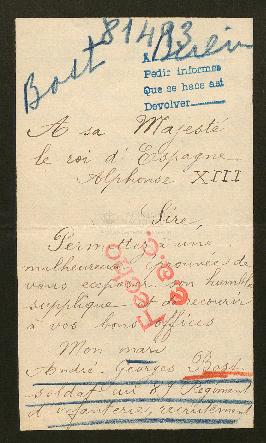 81493
Bost Berlin
A
Pedir informes
Que se hace asi
Devolver
A sa Majesté
le roi d'Espagne
Alphonse XIII
Sire,
Permettez à une
malheureuse de
vous exposer son humble
supplique de recourir
à vos bons offices
Mon mari
André-Georges Bost
soldat au Régiment
d'infanterie, recrutement